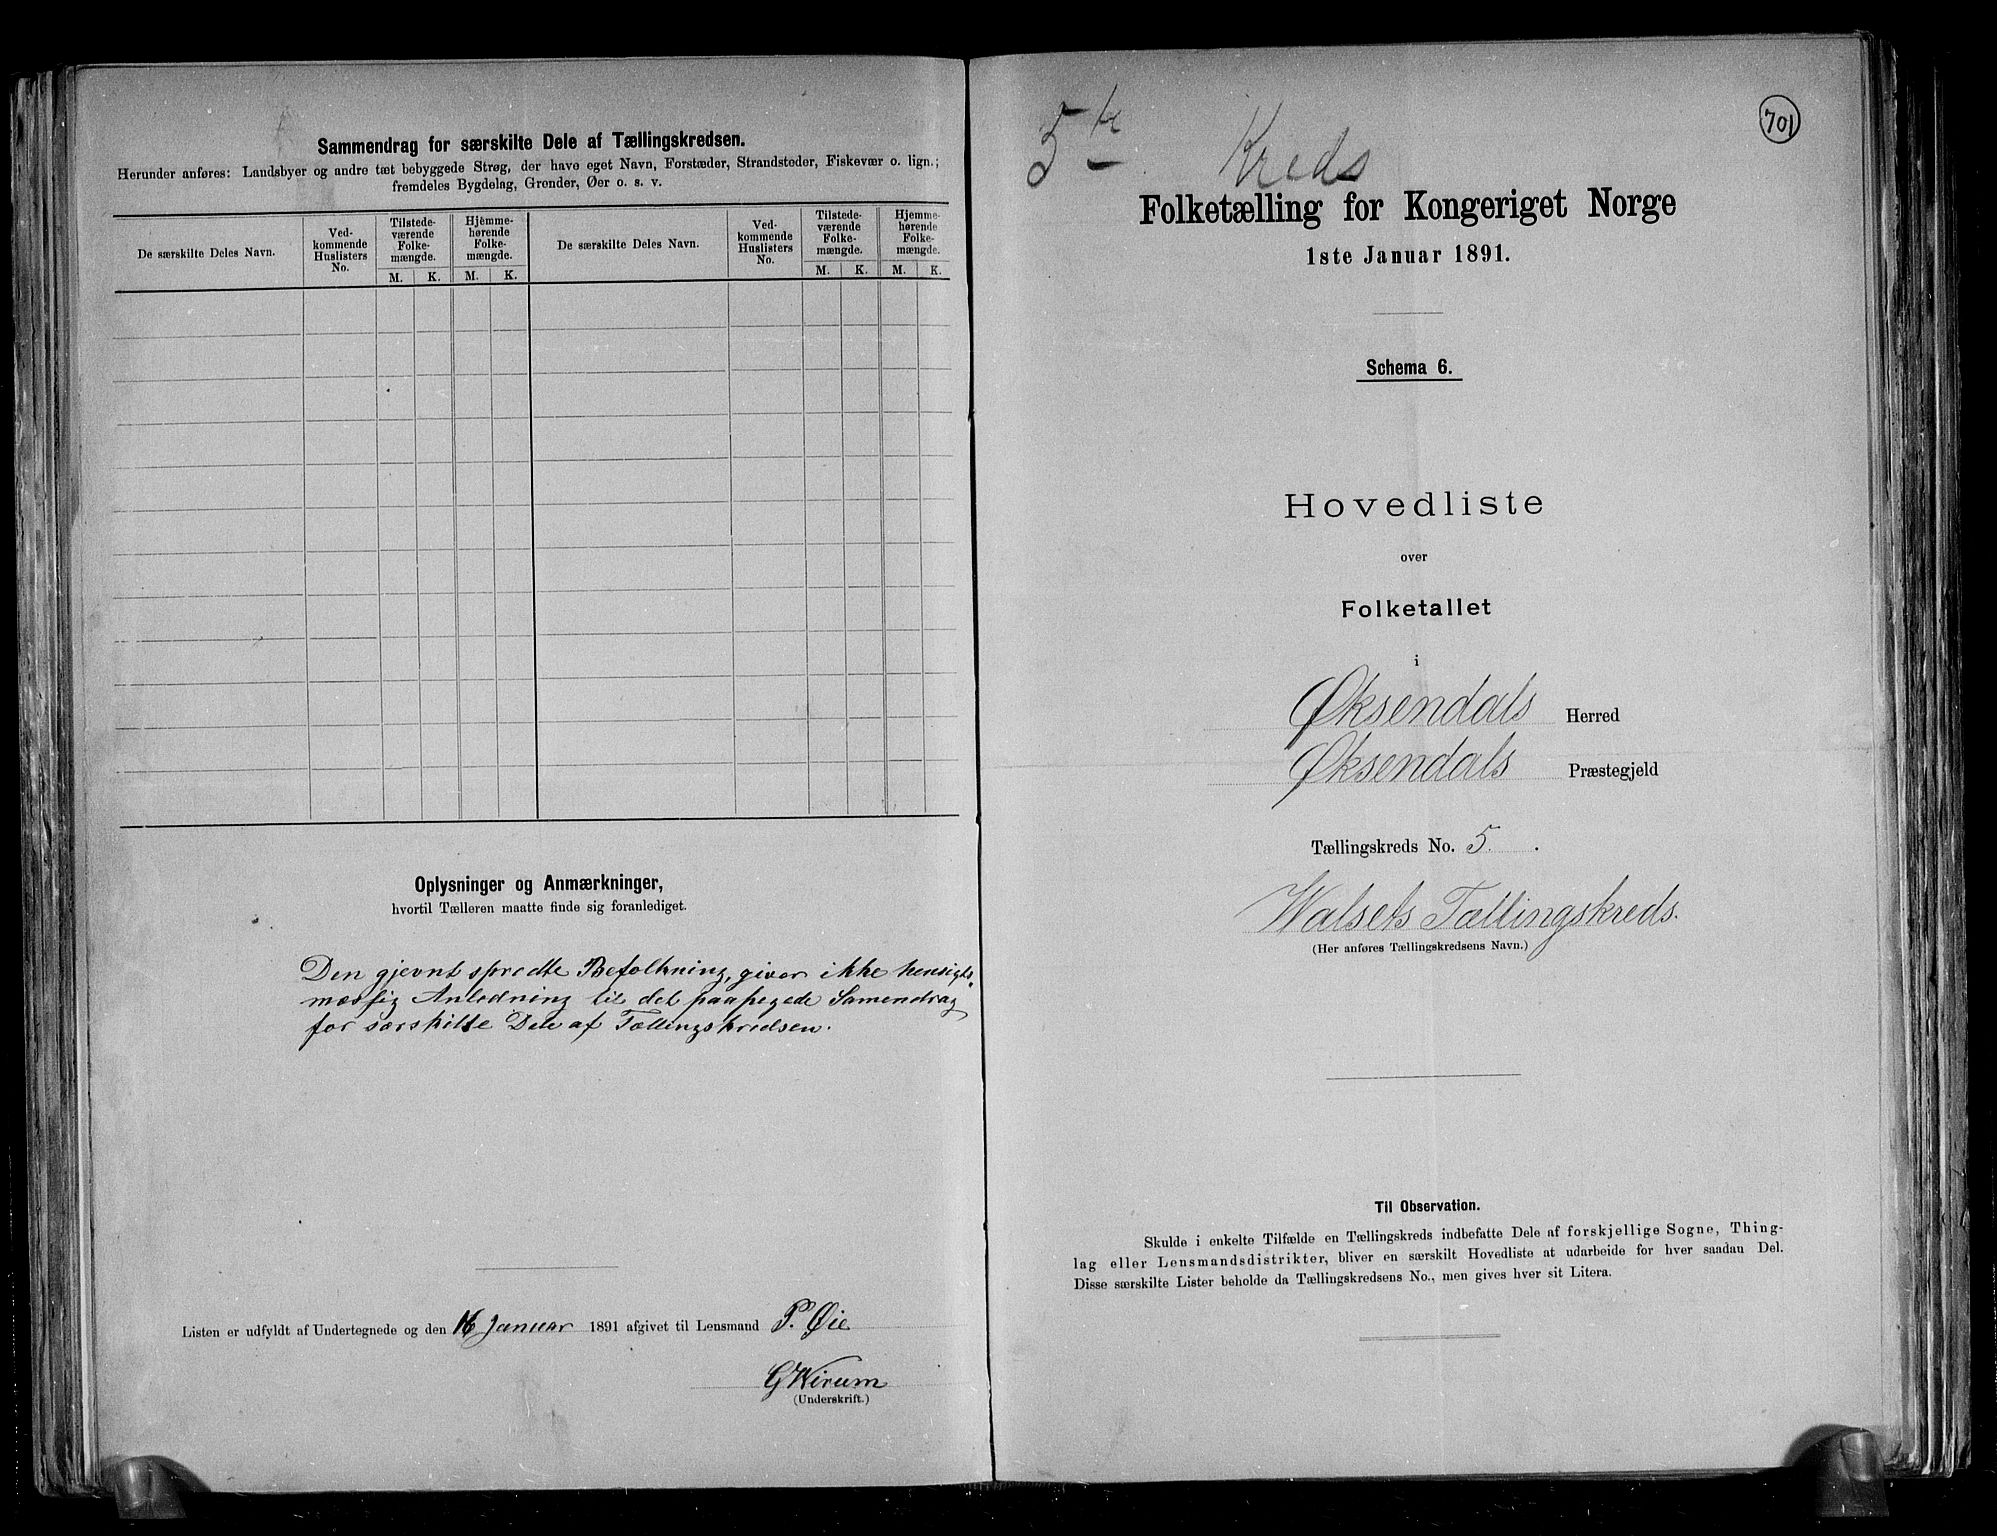 Sammendrag for særskilte Dele af Tællingskredsen.
Herunder anføres: Landsbyer og andre tæt bebyggede Strøg, der have eget Navn, Forstæder, Strandsteder, Fiskevær o. lign.;
fremdeles Bygdelag, Grender, Øer o. s. v.
De særskilte Deles Navn.
Ved-
kommende
Huslisters
No.
Tilstede-
værende
Folke-
mængde.
M. K.
Hjemme-
hørende
Folke-
mængde.
M. K.
De særskilte Deles Navn.
Ved-
kommende
Huslisters
No.
Tilstede-
værende
Folke-
mængde.
M. K.
Hjemme-
hørende
Folke-
mængde.
M. K.
Oplysninger og Anmærkninger,
hvortil Tælleren maatte finde sig foranlediget.
Den gjevnt spredte Befolkning, giver ikke hensigts-
mæssig Anledning til det paapegede Samendrag
for særskilte Dele af Tællingskredsen.
Listen er udfyldt af Undertegnede og den 16 Januar 1891 afgivet til Lensmand P. Øie
(Underskrift.)
701
5te Kreds
Folketælling for Kongeriget Norge
1ste Januar 1891.
Schema 6.
Hovedliste
over
Folketallet
i
Øksendals Herred
Øksendals Præstegjeld
Tællingskreds No. 5.
Walsets Tællingskreds.
(Her anføres Tællingskredsens Navn.)
Til Observation.
Skulde i enkelte Tilfælde en Tællingskreds indbefatte Dele af forskjellige Sogne, Thing-
lag eller Lensmandsdistrikter, bliver en særskilt Hovedliste at udarbeide for hver saadan Del.
Disse særskilte Lister beholde da Tællingskredsens No., men gives hver sit Litera.